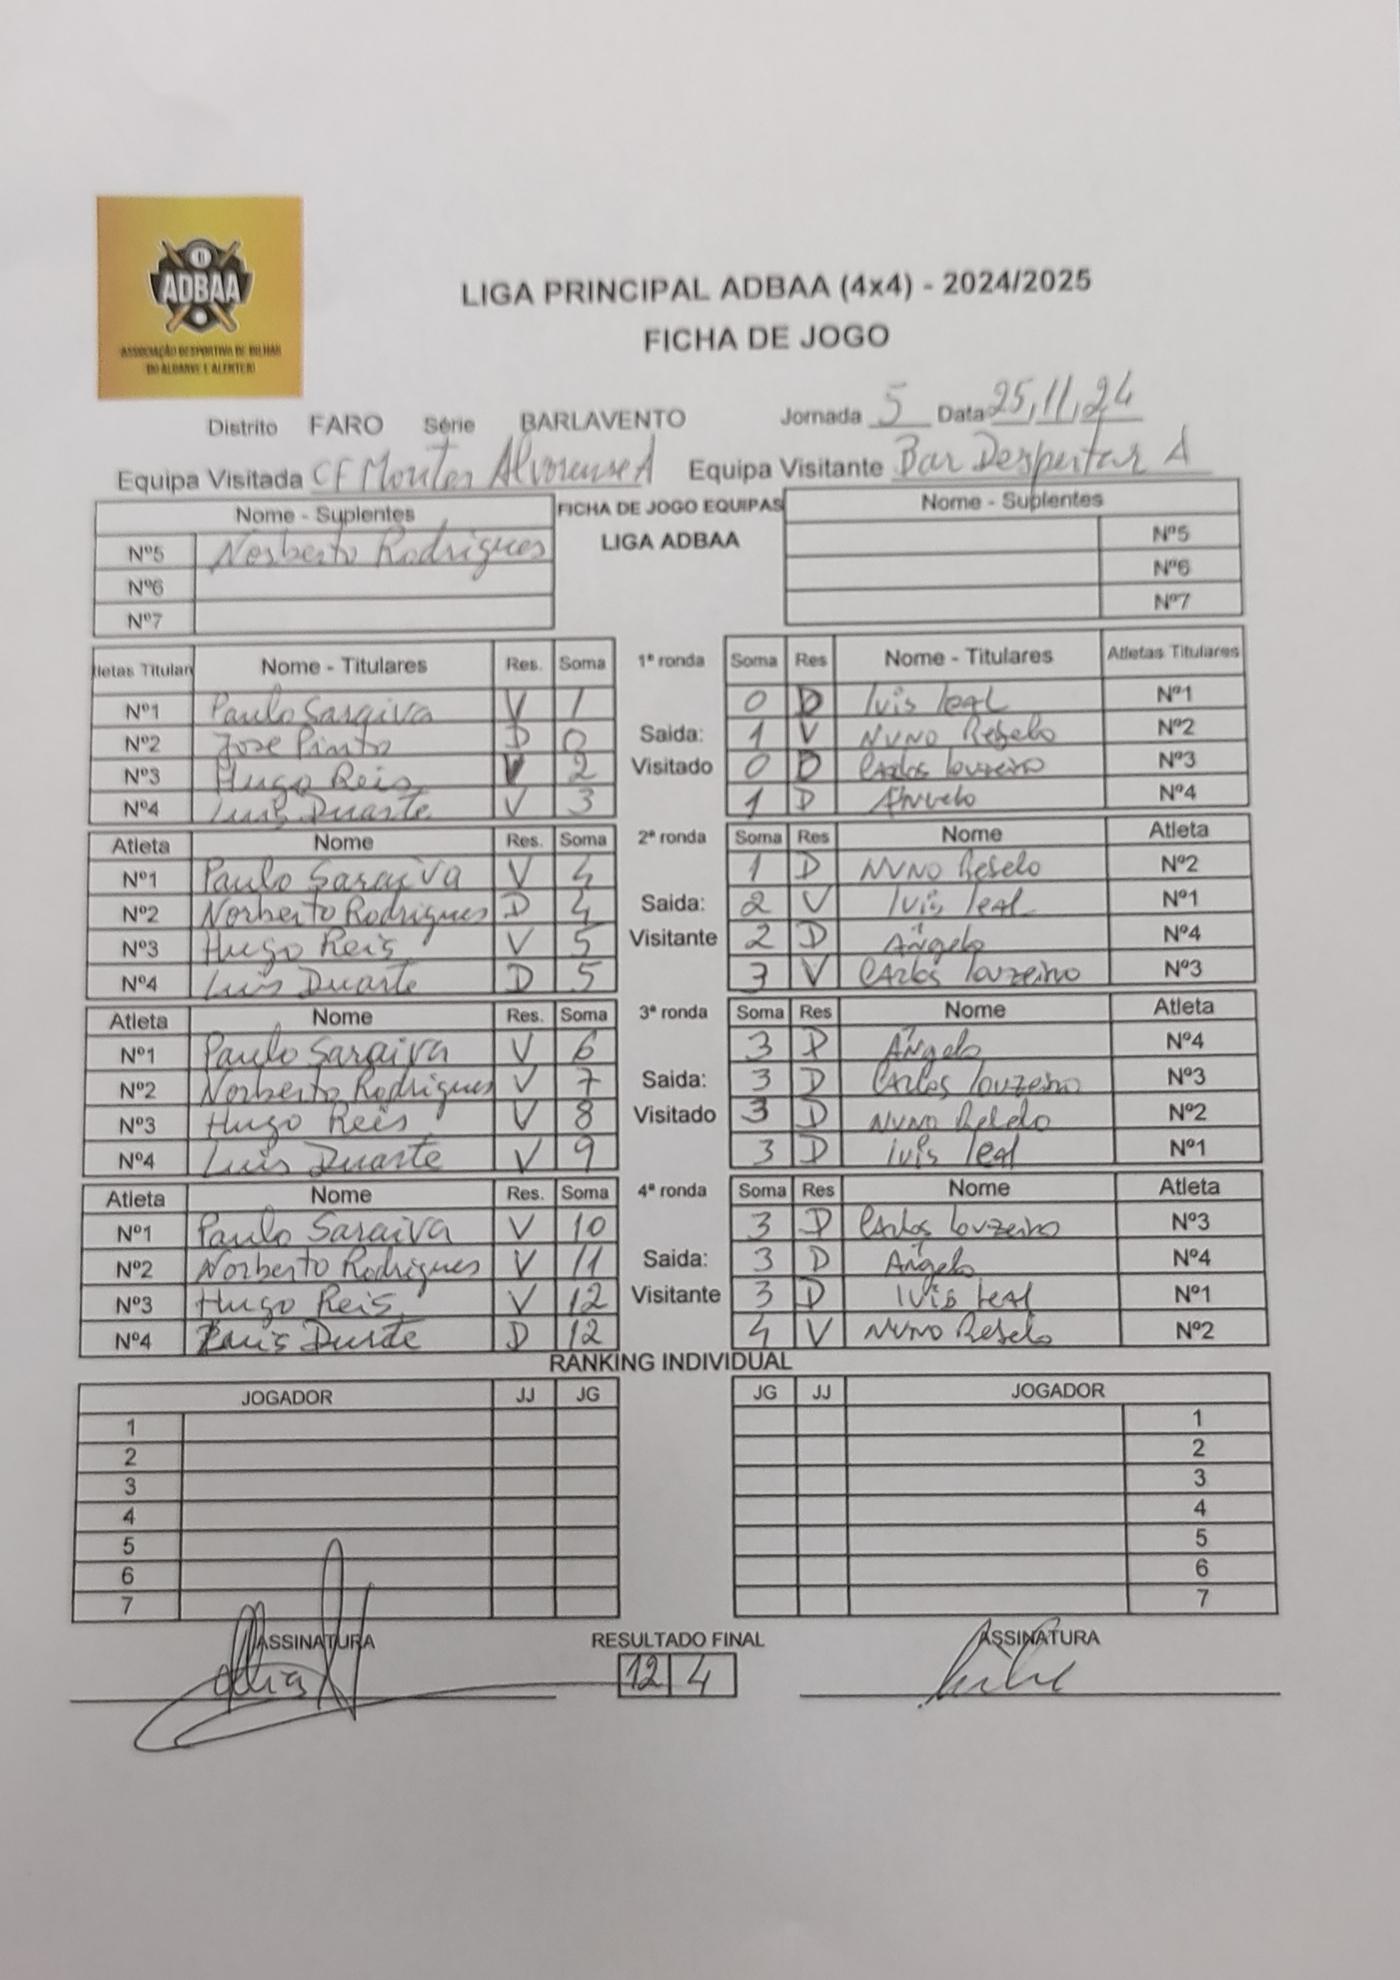 ADBAA
ASSOCIAÇÃO DESPORTIVA DE BILHAR
DO ALGARVE E ALENTEJO
LIGA PRINCIPAL ADBAA (4x4) - 2024/2025
FICHA DE JOGO
Distrito FARO Série BARLAVENTO Jornada 5 Data 25,11,24
Equipa Visitada CF Montes Alvorense A Equipa Visitante Bar Despertar A
Nome - Suplentes FICHA DE JOGO EQUIPAS Nome - Suplentes
Nº5 Norberto Rodrigues LIGA ADBAA Nº5
Nº6 Nº6
Nº7 Nº7
letas Titular Nome - Titulares Res. Soma 1ª ronda Soma Res Nome - Titulares Atletas Titulares
Nº1 Paulo Saraiva V 1 0 D luis leal Nº1
Nº2 Jose Pinto D 0 Saida: 1 V NUNO Rebelo Nº2
Nº3 Hugo Reis V 2 Visitado 0 D CArlos louzeiro Nº3
Nº4 Luis Duarte V 3 1 D Angelo Nº4
Atleta Nome Res. Soma 2ª ronda Soma Res Nome Atleta
Nº1 Paulo Saraiva V 4 1 D NUNO Rebelo Nº2
Nº2 Norberto Rodrigues D 4 Saida: 2 V luis leal Nº1
Nº3 Hugo Reis V 5 Visitante 2 D Ângelo Nº4
Nº4 Luis Duarte D 5 3 V CArlos louzeiro Nº3
Atleta Nome Res. Soma 3ª ronda Soma Res Nome Atleta
Nº1 Paulo Saraiva V 6 3 D Ângelo Nº4
Nº2 Norberto Rodrigues V 7 Saida: 3 D CArlos louzeiro Nº3
Nº3 Hugo Reis V 8 Visitado 3 D NUNO Rebelo Nº2
Nº4 Luis Duarte V 9 3 D luis leal Nº1
Atleta Nome Res. Soma 4ª ronda Soma Res Nome Atleta
Nº1 Paulo Saraiva V 10 3 D CArlos louzeiro Nº3
Nº2 Norberto Rodrigues V 11 Saida: 3 D Ângelo Nº4
Nº3 Hugo Reis V 12 Visitante 3 D luis leal Nº1
Nº4 Luis Durte D 12 4 V NUNO Rebelo Nº2
RANKING INDIVIDUAL
JOGADOR JJ JG JG JJ JOGADOR
1 1
2 2
3 3
4 4
5 5
6 6
7 7
ASSINATURA RESULTADO FINAL ASSINATURA
12 4